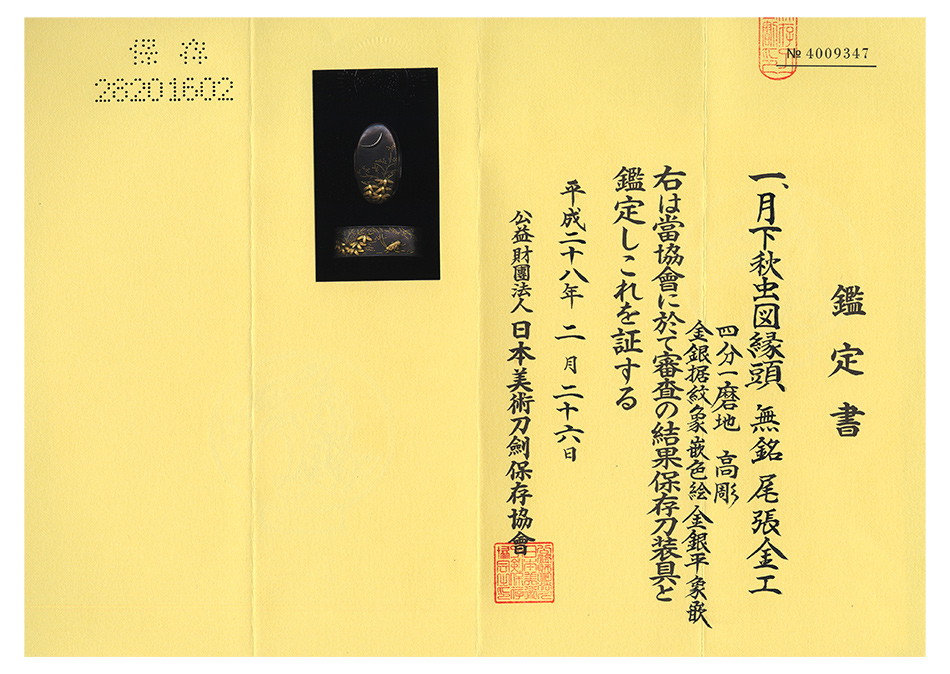 № 4009347
鑑定書
一、月下秋虫図縁頭 無銘 尾張金工
四分一磨地 高彫
金銀据紋象嵌色絵 金銀平象嵌
右は當協會に於て審査の結果保存刀装具と
鑑定しこれを証する
平成二十八年 二月二十六日
公益財團法人 日本美術刀劍保存協會
保存
28201602